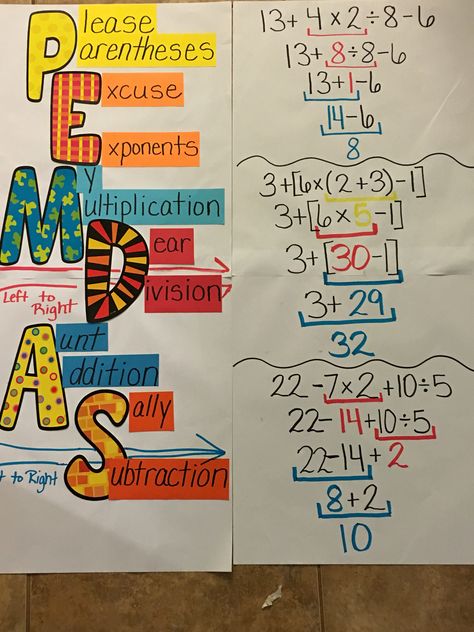 Please
Parentheses
Excuse
Exponents
My
Multiplication
Dear
Division
Left to
Right
Aunt
Addition
Sally
Subtraction
to Right
13+4×2÷8-6
13+8÷8-6
13+1-6
14-6
8
3+[6×(2+3)-1]
3+[6×5-1]
3+[30-1]
3+29
32
22-7×2+10÷5
22-14+10÷5
22-14+2
8+2
10